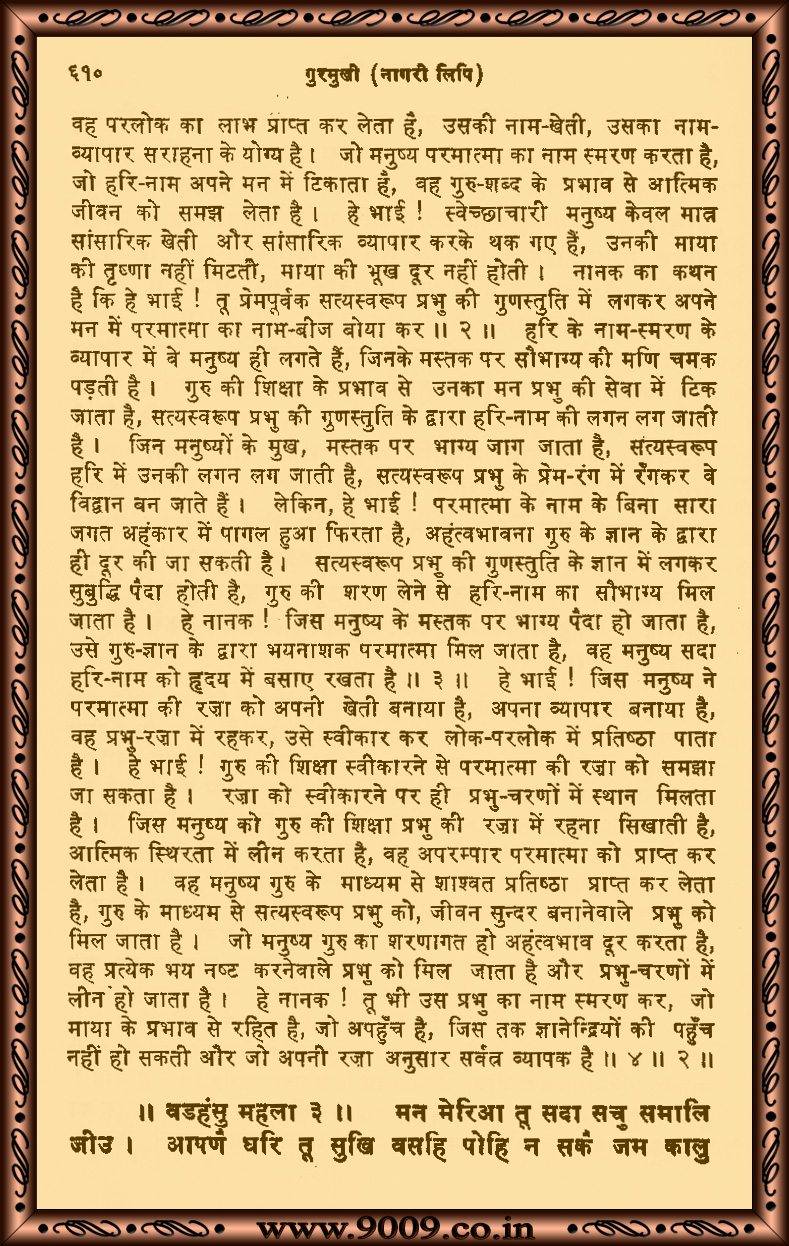 ६१० गुरमुखी (नागरी लिपि)
वह परलोक का लाभ प्राप्त कर लेता है, उसकी नाम-खेती, उसका नाम-
व्यापार सराहना के योग्य है। जो मनुष्य परमात्मा का नाम स्मरण करता है,
जो हरि-नाम अपने मन में टिकाता है, वह गुरु-शब्द के प्रभाव से आत्मिक
जीवन को समझ लेता है। हे भाई! स्वेच्छाचारी मनुष्य केवल मात्र
सांसारिक खेती और सांसारिक व्यापार करके थक गए हैं, उनकी माया
की तृष्णा नहीं मिटती, माया की भूख दूर नहीं होती। नानक का कथन
है कि हे भाई! तू प्रेमपूर्वक सत्यस्वरूप प्रभु की गुणस्तुति में लगकर अपने
मन में परमात्मा का नाम-बीज बोया कर॥ २॥ हरि के नाम-स्मरण के
व्यापार में वे मनुष्य ही लगते हैं, जिनके मस्तक पर सौभाग्य की मणि चमक
पड़ती है। गुरु की शिक्षा के प्रभाव से उनका मन प्रभु की सेवा में टिक
जाता है, सत्यस्वरूप प्रभु की गुणस्तुति के द्वारा हरि-नाम की लगन लग जाती
है। जिन मनुष्यों के मुख, मस्तक पर भाग्य जाग जाता है, सत्यस्वरूप
हरि में उनकी लगन लग जाती है, सत्यस्वरूप प्रभु के प्रेम-रंग में रँगकर वे
विद्वान बन जाते हैं। लेकिन, हे भाई! परमात्मा के नाम के बिना सारा
जगत अहंकार में पागल हुआ फिरता है, अहंत्वभावना गुरु के ज्ञान के द्वारा
ही दूर की जा सकती है। सत्यस्वरूप प्रभु की गुणस्तुति के ज्ञान में लगकर
सुबुद्धि पैदा होती है, गुरु की शरण लेने से हरि-नाम का सौभाग्य मिल
जाता है। हे नानक! जिस मनुष्य के मस्तक पर भाग्य पैदा हो जाता है,
उसे गुरु-ज्ञान के द्वारा भयनाशक परमात्मा मिल जाता है, वह मनुष्य सदा
हरि-नाम को हृदय में बसाए रखता है॥ ३॥ हे भाई! जिस मनुष्य ने
परमात्मा की रज़ा को अपनी खेती बनाया है, अपना व्यापार बनाया है,
वह प्रभु-रज़ा में रहकर, उसे स्वीकार कर लोक-परलोक में प्रतिष्ठा पाता
है। हे भाई! गुरु की शिक्षा स्वीकारने से परमात्मा की रज़ा को समझा
जा सकता है। रज़ा को स्वीकारने पर ही प्रभु-चरणों में स्थान मिलता
है। जिस मनुष्य को गुरु की शिक्षा प्रभु की रज़ा में रहना सिखाती है,
आत्मिक स्थिरता में लीन करता है, वह अपरम्पार परमात्मा को प्राप्त कर
लेता है। वह मनुष्य गुरु के माध्यम से शाश्वत प्रतिष्ठा प्राप्त कर लेता
है, गुरु के माध्यम से सत्यस्वरूप प्रभु को, जीवन सुन्दर बनानेवाले प्रभु को
मिल जाता है। जो मनुष्य गुरु का शरणागत हो अहंत्वभाव दूर करता है,
वह प्रत्येक भय नष्ट करनेवाले प्रभु को मिल जाता है और प्रभु-चरणों में
लीन हो जाता है। हे नानक! तू भी उस प्रभु का नाम स्मरण कर, जो
माया के प्रभाव से रहित है, जो अपहुँच है, जिस तक ज्ञानेन्द्रियों की पहुँच
नहीं हो सकती और जो अपनी रज़ा अनुसार सर्वत्र व्यापक है॥ ४॥ २॥
॥ वडहंसु महला ३॥ मन मेरिआ तू सदा सचु समालि
जीउ। आपणै घरि तू सुखि वसहि पोहि न सकै जम कालु
www.9009.co.in